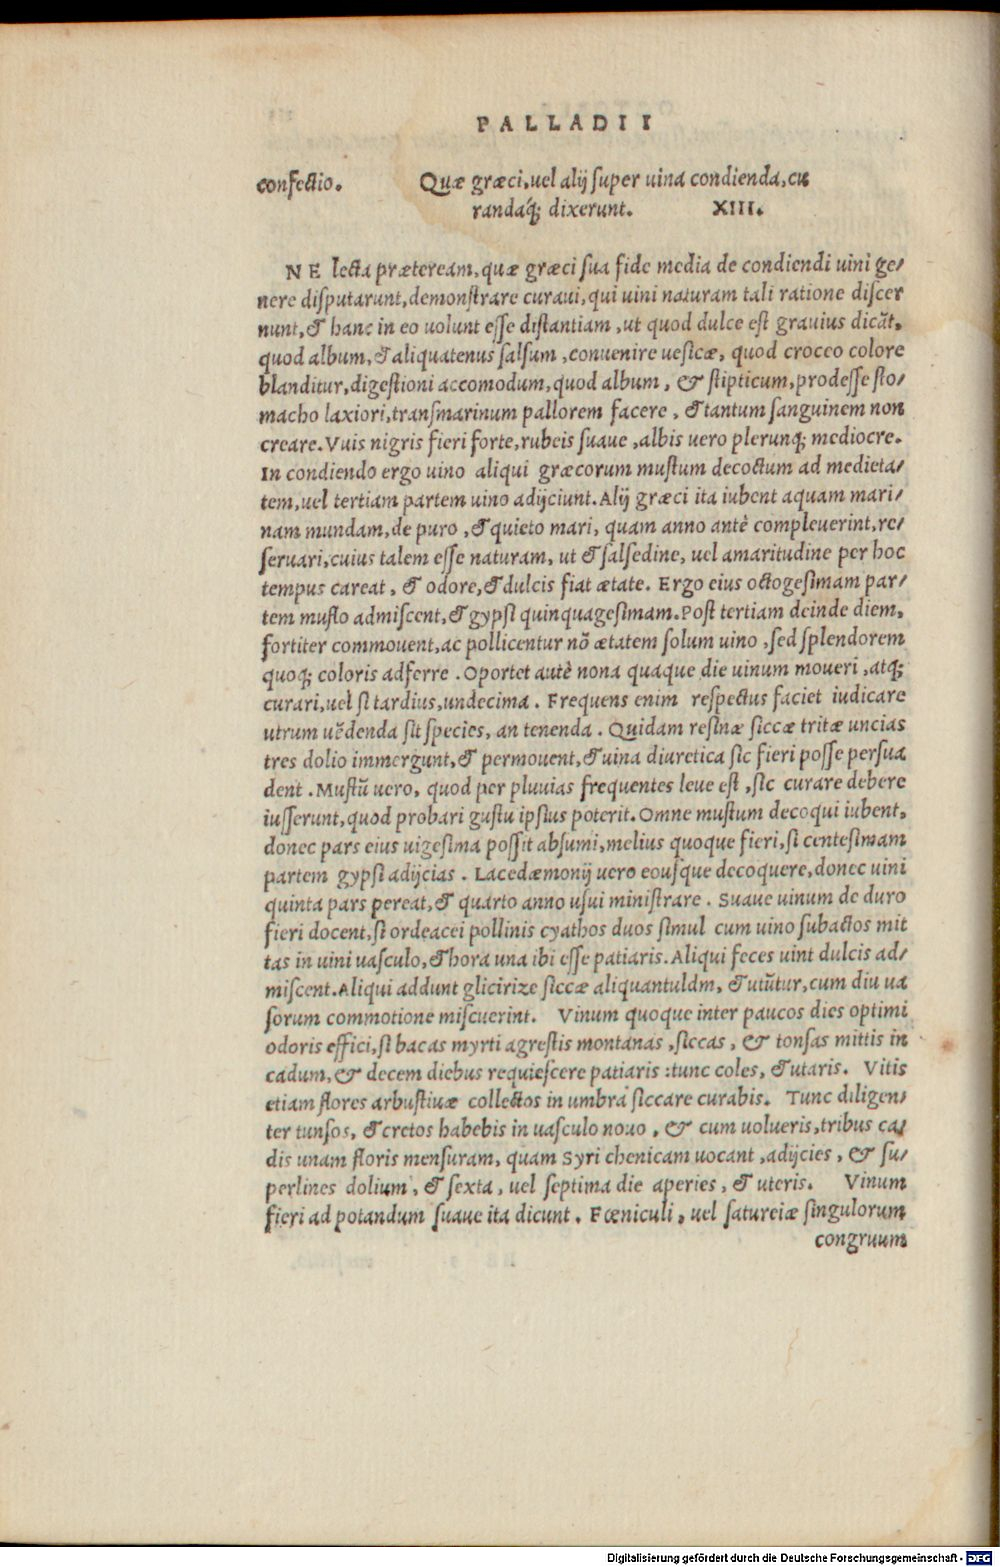 PALLADII
confectio. Quæ græci, uel alij super uina condienda, cu
randáq; dixerunt. XIII.
NE lecta præteream, quæ græci sua fide media de condiendi uini ge/
nere disputarunt, demonstrare curaui, qui uini naturam tali ratione discer
nunt, & hanc in eo uolunt esse distantiam, ut quod dulce est grauius dicāt,
quod album, & aliquatenus salsum, conuenire uesicæ, quod croceo colore
blanditur, digestioni accomodum, quod album, & stipticum, prodesse sto/
macho laxiori, transmarinum pallorem facere, & tantum sanguinem non
creare. Vuis nigris fieri forte, rubeis suaue, albis uero plerunq; mediocre.
In condiendo ergo uino aliqui græcorum mustum decoctum ad medieta/
tem, uel tertiam partem uino adijciunt. Alij græci ita iubent aquam mari/
nam mundam, de puro, & quieto mari, quam anno antè compleuerint, re/
seruari, cuius talem esse naturam, ut & salsedine, uel amaritudine per hoc
tempus careat, & odore, & dulcis fiat ætate. Ergo eius octogesimam par/
tem musto admiscent, & gypsi quinquagesimam. Post tertiam deinde diem,
fortiter commouent, ac pollicentur nō ætatem solum uino, sed splendorem
quoq; coloris adferre. Oportet autē nona quaque die uinum moueri, atq;
curari, uel si tardius, undecima. Frequens enim respectus faciet iudicare
utrum uēdenda sit species, an tenenda. Quidam resinæ siccæ tritæ uncias
tres dolio immergunt, & permouent, & uina diuretica sic fieri posse persua
dent. Mustū uero, quod per pluuias frequentes leue est, sic curare debere
iusserunt, quod probari gustu ipsius poterit. Omne mustum decoqui iubent,
donec pars eius uigesima possit absumi, melius quoque fieri, si centesimam
partem gypsi adijcias. Lacedæmonij uero eousque decoquere, donec uini
quinta pars pereat, & quarto anno usui ministrare. Suaue uinum de duro
fieri docent, si ordeacei pollinis cyathos duos simul cum uino subactos mit
tas in uini uasculo, & hora una ibi esse patiaris. Aliqui feces uint dulcis ad/
miscent. Aliqui addunt glicirize siccæ aliquantuldm, & utūtur, cum diu ua
sorum commotione miscuerint. Vinum quoque inter paucos dies optimi
odoris effici, si bacas myrti agrestis montanas, siccas, & tonsas mittis in
cadum, & decem diebus requiescere patiaris: tunc coles, & utaris. Vitis
etiam flores arbustiuæ collectos in umbra siccare curabis. Tunc diligen/
ter tunsos, & cretos habebis in uasculo nouo, & cum uolueris, tribus ca/
dis unam floris mensuram, quam Syri chenicam uocant, adijcies, & su/
perlines dolium, & sexta, uel septima die aperies, & uteris. Vinum
fieri ad potandum suaue ita dicunt. Fœniculi, uel satureiæ singulorum
congruum
Digitalisierung gefördert durch die Deutsche Forschungsgemeinschaft - DFG